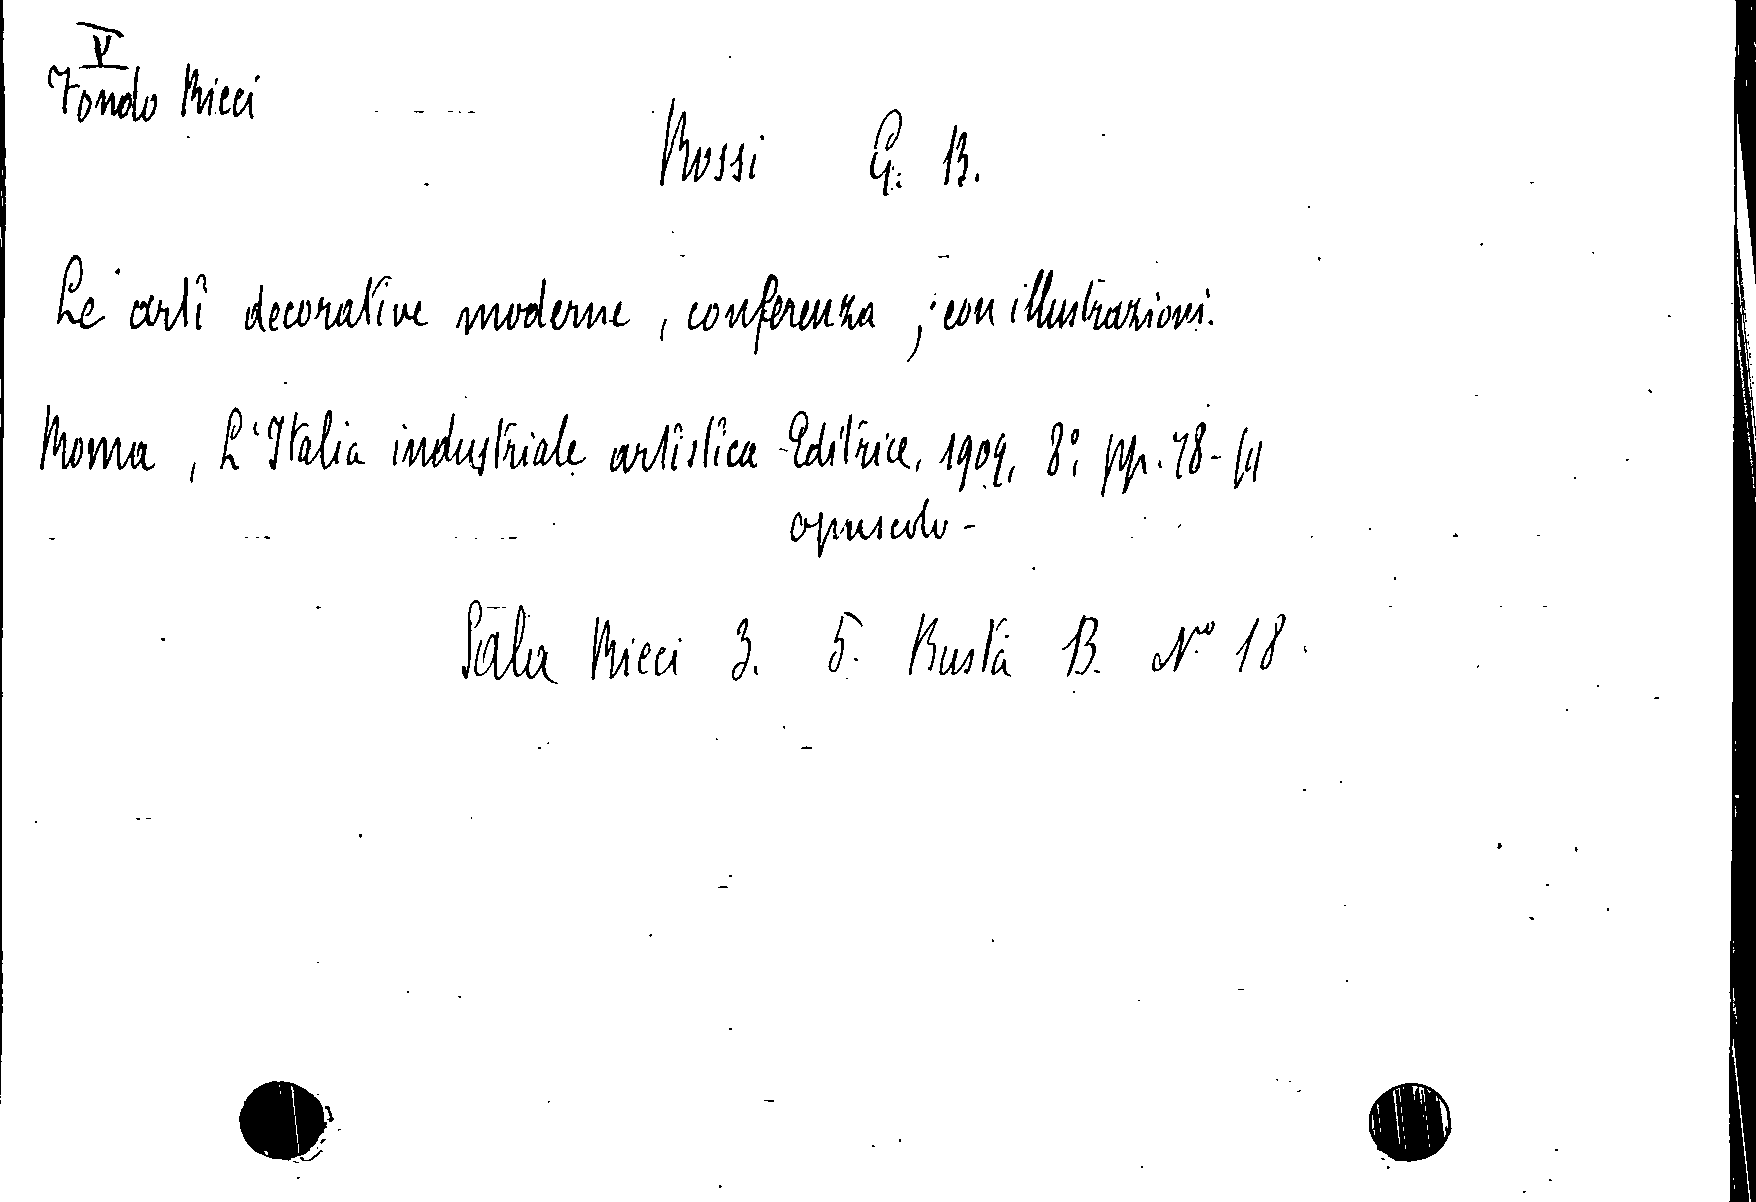 V
Fondo Ricci
Rossi G. B.
Le arti decorative moderne, conferenza; con illustrazioni.
Roma, L'Italia industriale artistica Editrice, 1909, 8° pp.
opuscolo -
Sala Ricci 3. 5. Busta B. N° 18.